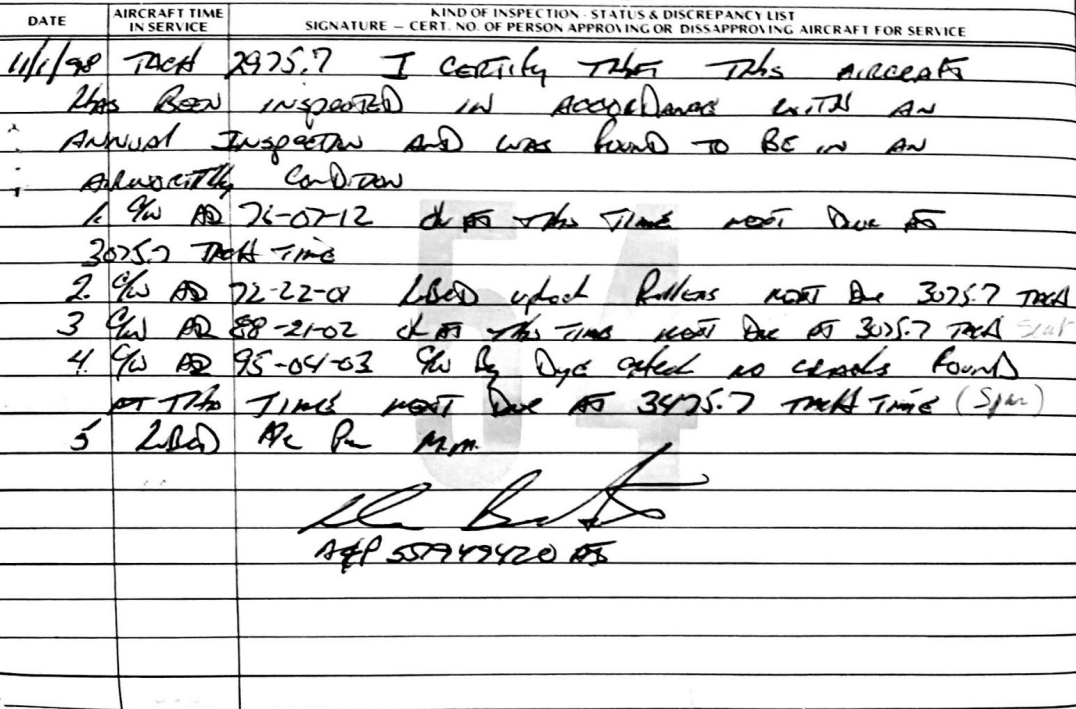 DATE AIRCRAFT TIME IN SERVICE KIND OF INSPECTION - STATUS & DISCREPANCY LIST
SIGNATURE — CERT. NO. OF PERSON APPROVING OR DISSAPPROVING AIRCRAFT FOR SERVICE
11/1/98 TACH 2975.7 I CERTIFY THAT THIS AIRCRAFT
HAS BEEN INSPECTED IN ACCORDANCE WITH AN
ANNUAL INSPECTION AND WAS FOUND TO BE IN AN
AIRWORTHY CONDITION
1. C/W AD 76-07-12 ck AT THIS TIME NEXT DUE AT
3075.7 TACH TIME
2. C/W AD 72-22-01 LUBED uplock Rollers NEXT Due 3075.7 TACH
3 C/W AD 88-21-02 ck AT THIS TIME NEXT Due AT 3075.7 TACH
4. C/W AD 95-04-03 C/W By Dye check NO CRACKS FOUND
AT THIS TIME NEXT Due AT 3475.7 TACH TIME (Spar)
5 LUBED A/C Per M.M.
54
A&P